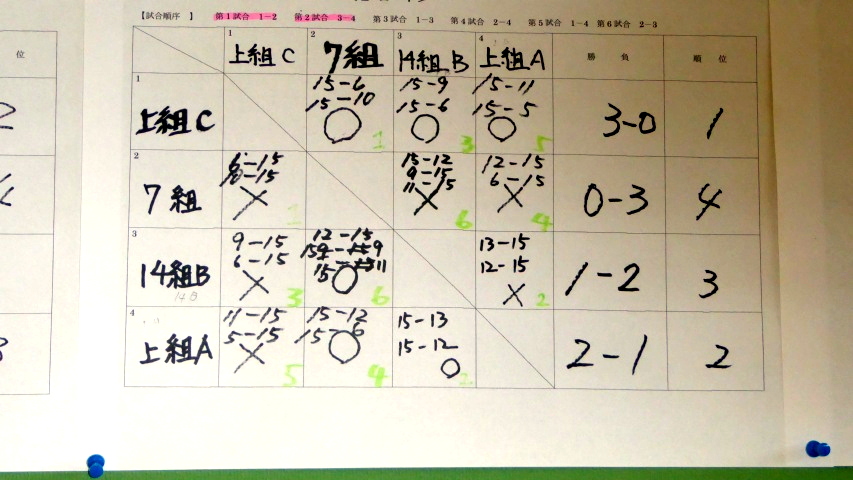 【試合順序 】 第1試合 1−2 第2試合 3−4 第3試合 1−3 第4試合 2−4 第5試合 1−4 第6試合 2−3
位
1 上組C
2 7組
3 14組B
4 上組A
勝 負
順 位
1
上組C
15-6
15-10
○
1
15-9
15-6
○
3
15-11
15-5
○
5
3-0
1
2
7組
6-15
10-15
×
1
15-12
9-15
11-15
×
6
12-15
6-15
×
4
0-3
4
3
14組B
14B
9-15
6-15
×
3
12-15
15-9
15-11
○
6
13-15
12-15
×
2
1-2
3
4
上組A
11-15
5-15
×
5
15-12
15-6
○
4
15-13
15-12
○
2
2-1
2